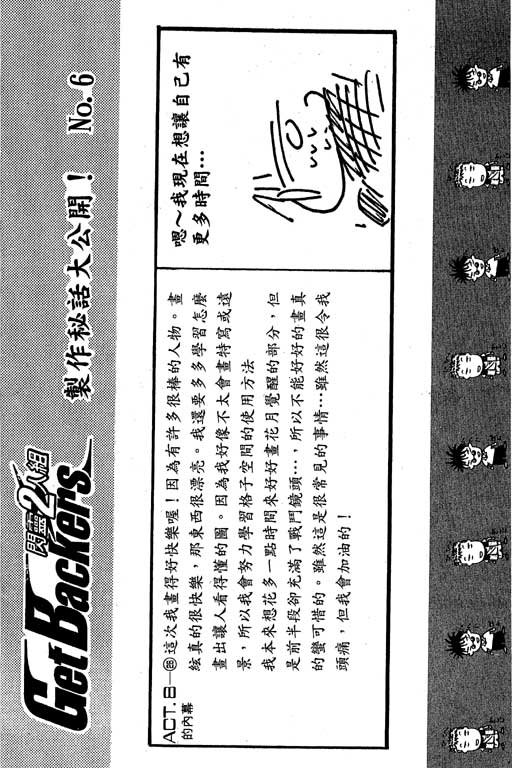 閃靈2人組
GetBackers
製作秘話大公開! No. 6
ACT. 8—⑯
的內幕
這次我畫得好快樂喔!因為有許多很棒的人物。畫
絃真的很快樂,那東西很漂亮。我還要多多學習怎麼
畫出讓人看得懂的圖。因為我好像不太會畫特寫或遠
景,所以我會努力學習格子空間的使用方法
我本來想花多一點時間來好好畫花月覺醒的部分,但
是前半段卻充滿了戰鬥鏡頭…,所以不能好好的畫真
的蠻可惜的。雖然這是很常見的事情…雖然這很令我
頭痛,但我會加油的!
嗯~我現在想讓自己有
更多時間…